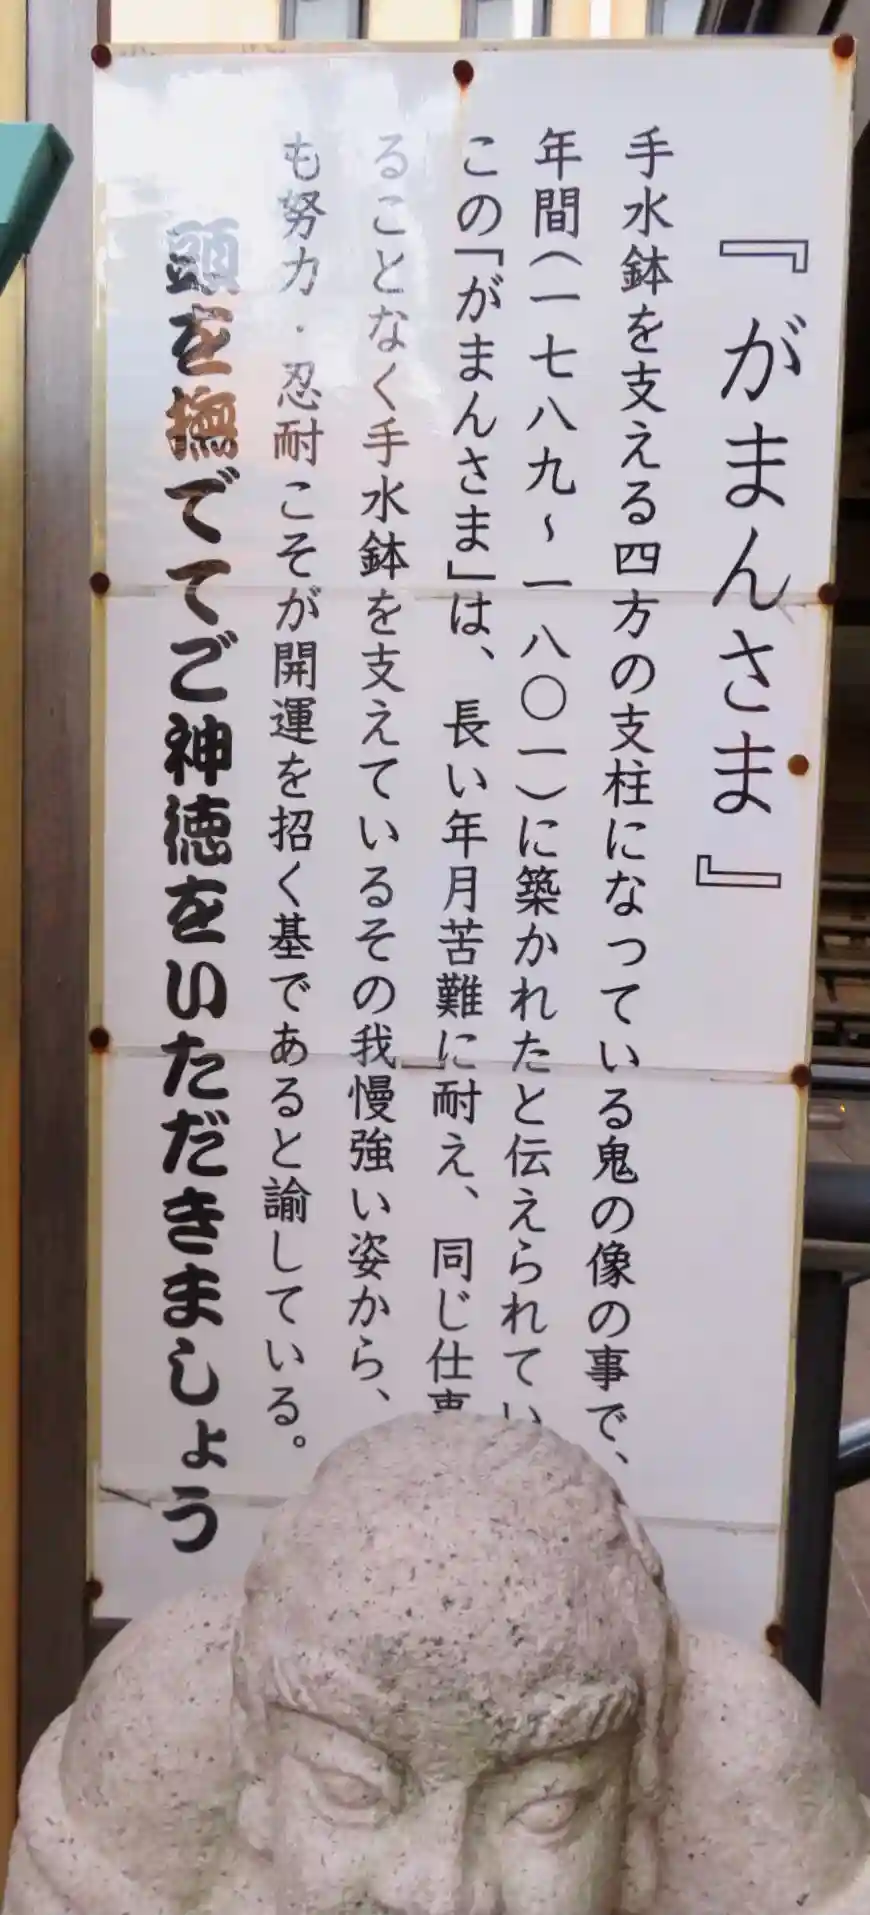 『がまんさま』
手水鉢を支える四方の支柱になっている鬼の像の事で、
年間(一七八九〜一八〇一)に築かれたと伝えられてい
この『がまんさま』は、長い年月苦難に耐え、同じ仕事
ることなく手水鉢を支えているその我慢強い姿から、
も努力・忍耐こそが開運を招く基であると諭している。
頭を撫でてご神徳をいただきましょう